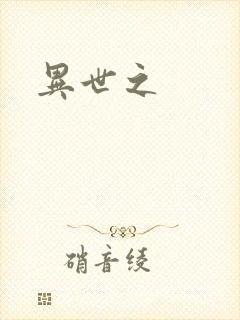 異世之
硝音绫